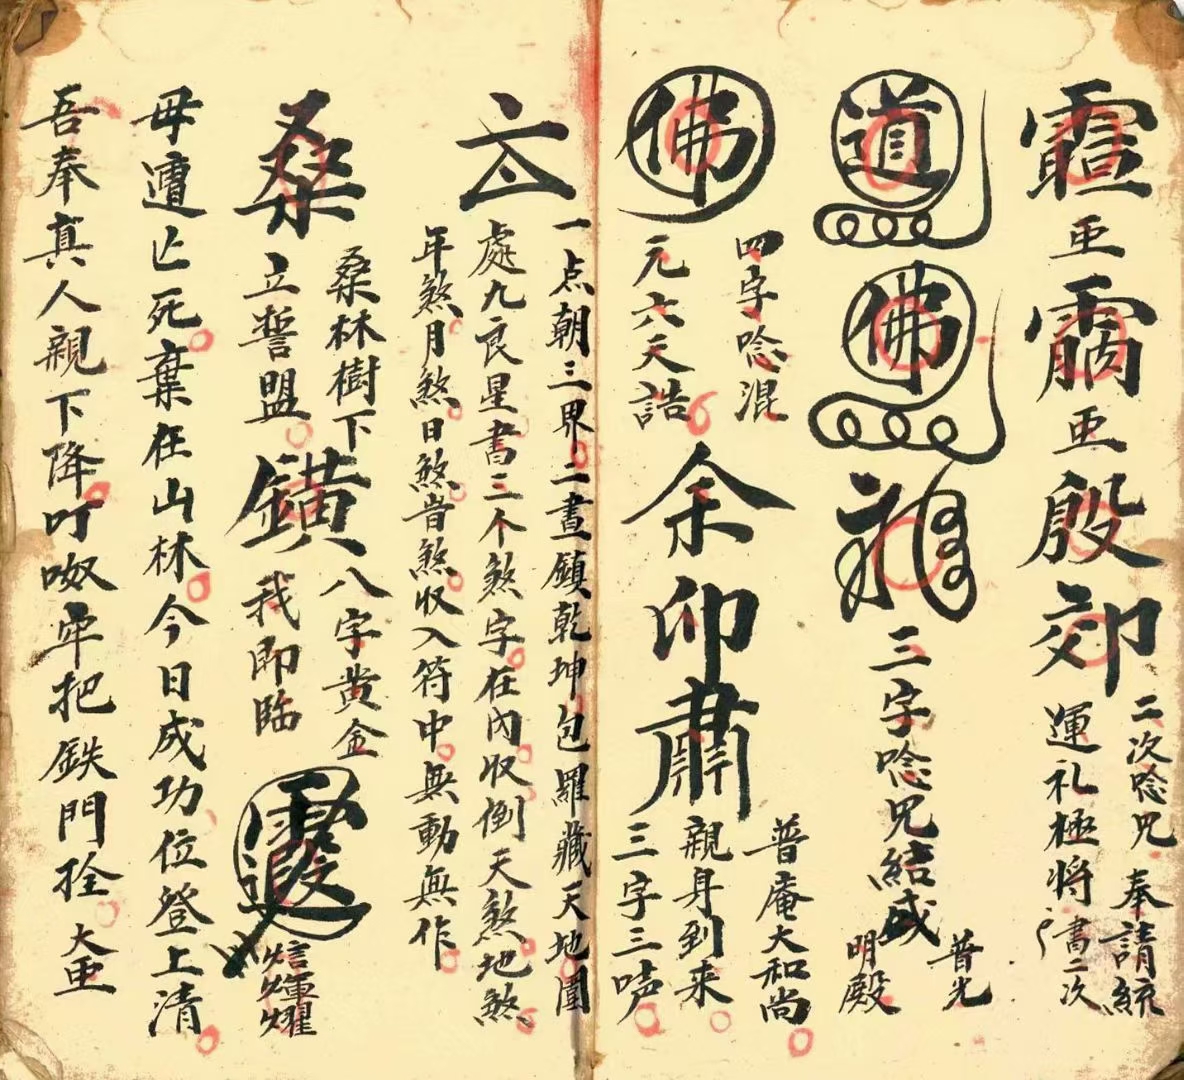 亜 亜 殷 郊
二次唸咒奉請統
運礼極将 書二次
道 佛
三字唸咒結成
普光
明殿
佛
四字唸混
元六天誥
余 卬 肅
普庵大和尚
親身到来
三字三唥
一点朝三界二畫鎮乾坤包羅藏天地圍
處九良星書三个煞字在内収倒天煞地煞
年煞月煞日煞旹煞収入符中無動無作
桑
桑林樹下
立誓盟
鐄
八字黄金
我即臨
輝耀
毋遭亡死棄在山林今日成功位登上清
吾奉真人親下降叮呶牢把鉄門拴